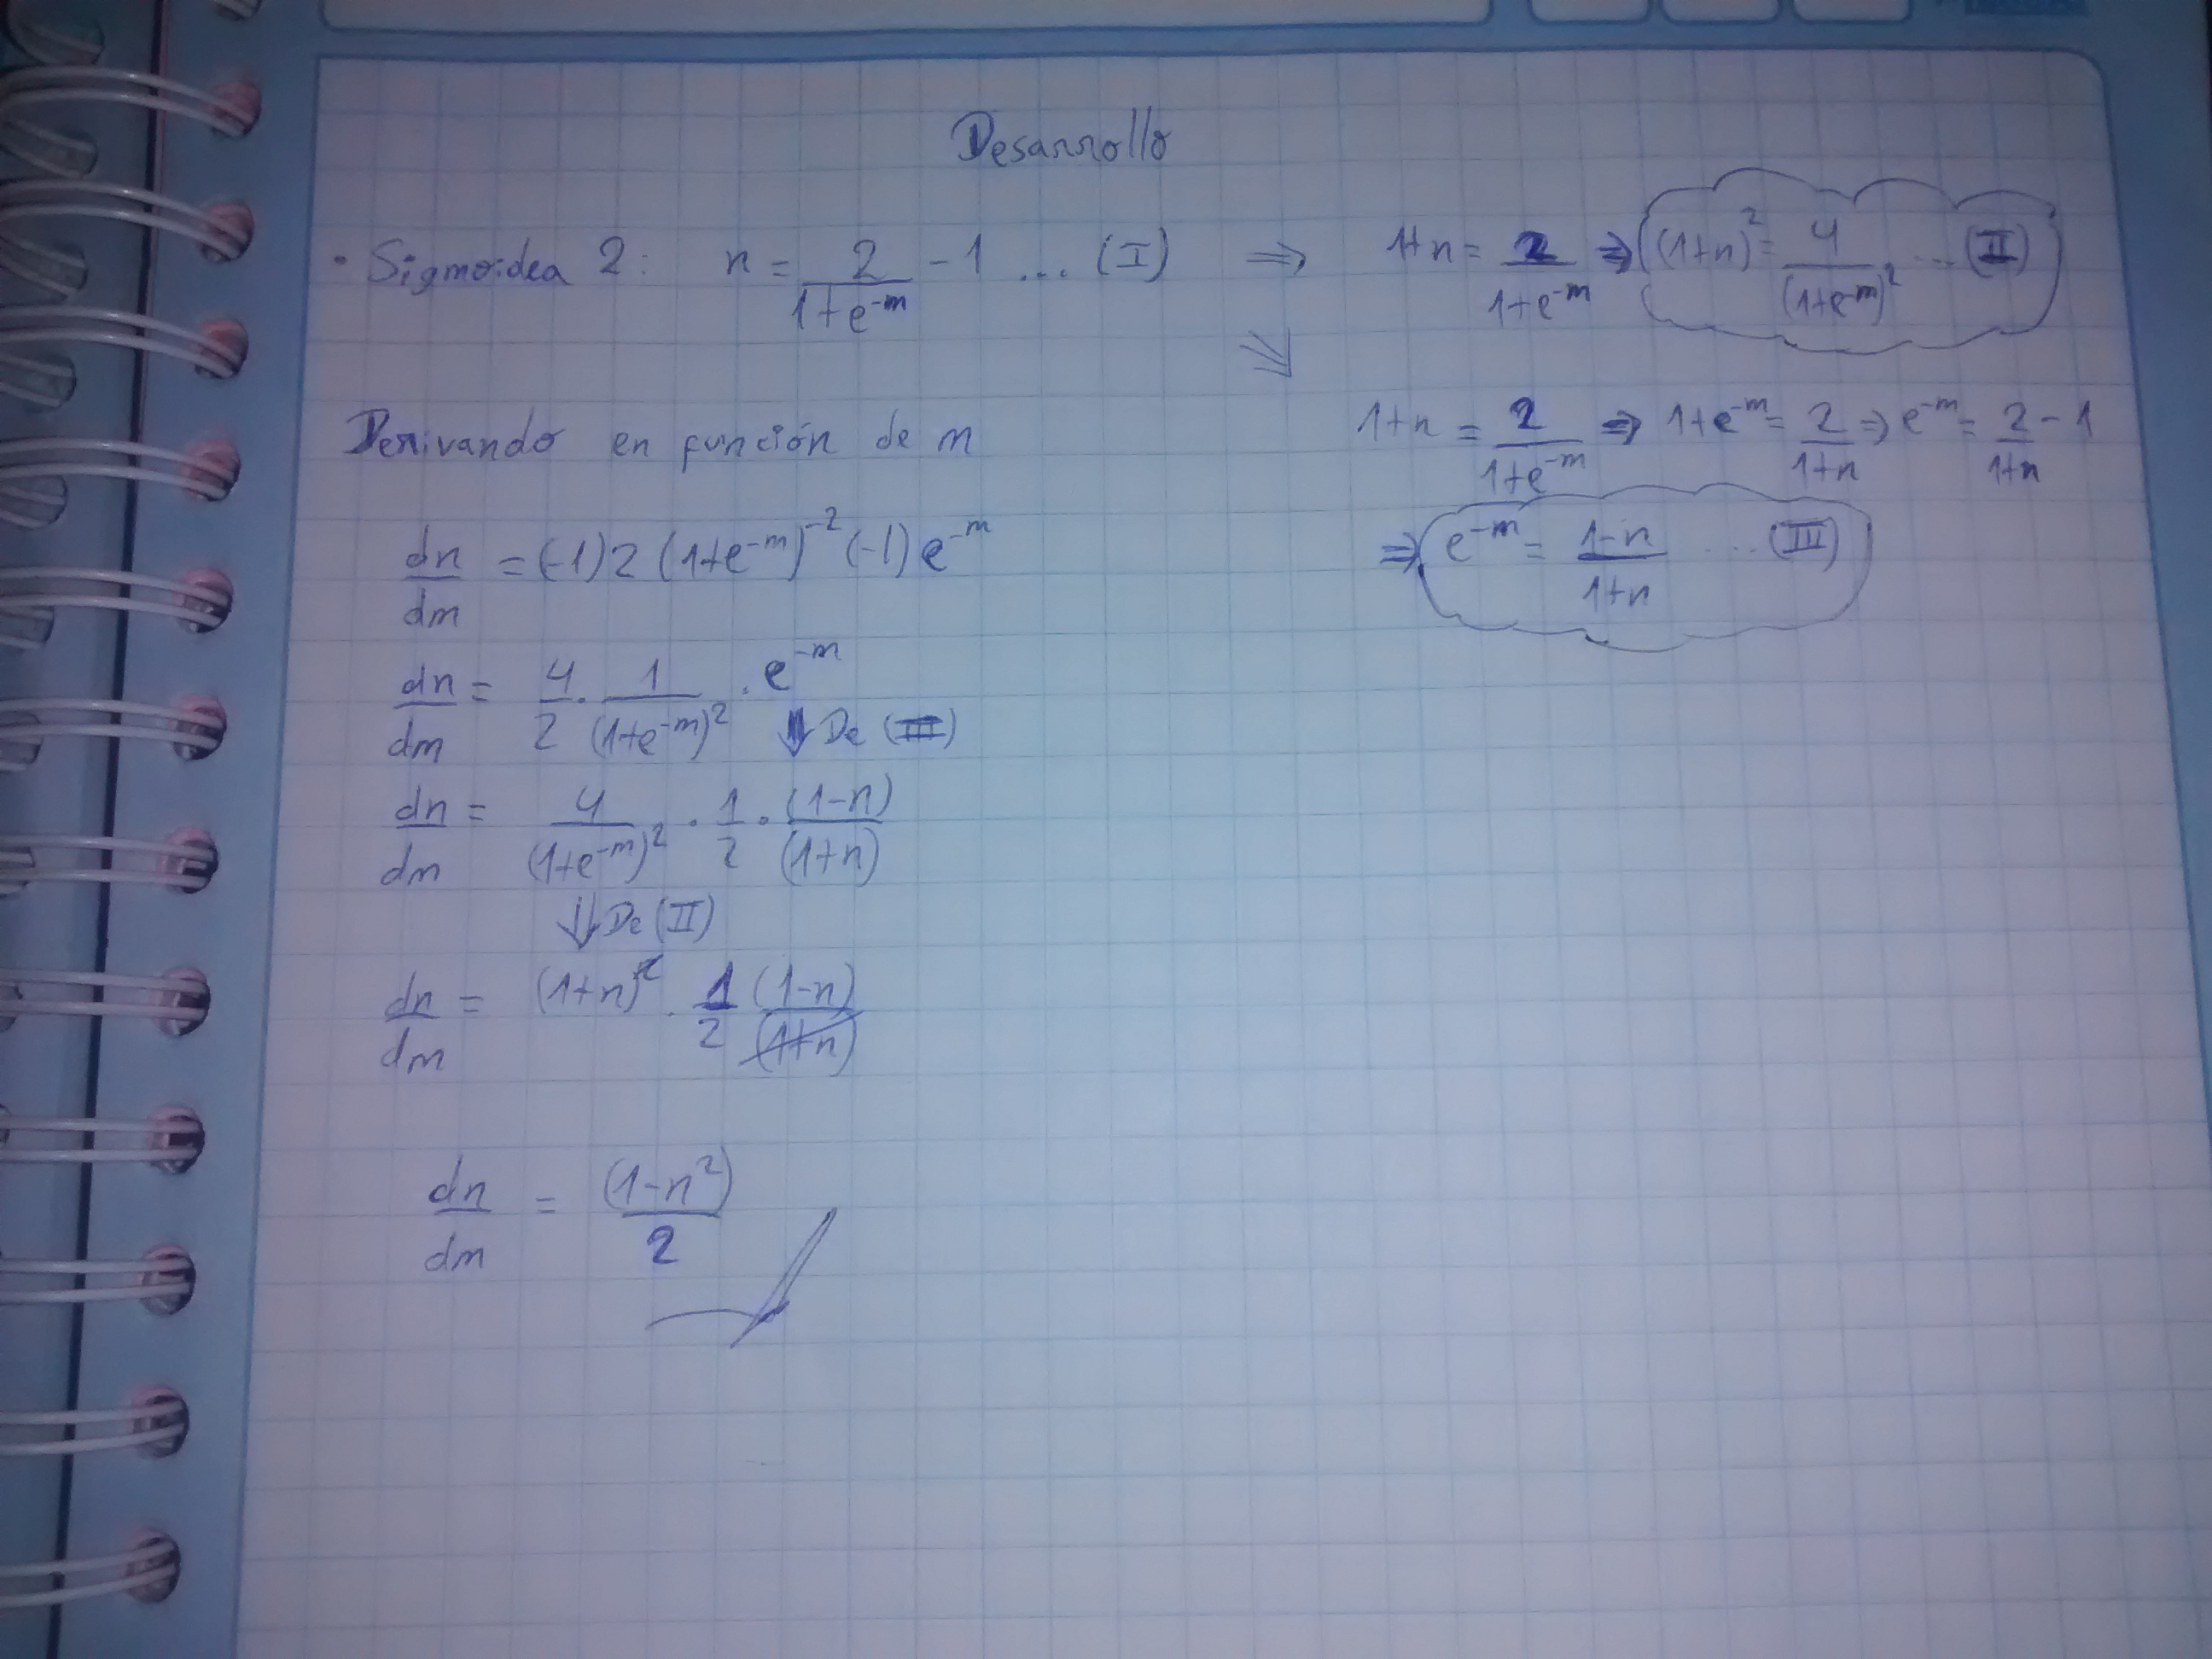 Desarrollo
• Sigmoidea 2: n = 2/(1+e^-m) - 1 ... (I) ⇒ 1+n = 2/(1+e^-m) ⇒ (1+n)^2 = 4/(1+e^-m)^2 ... (II)
⇓
1+n = 2/(1+e^-m) ⇒ 1+e^-m = 2/(1+n) ⇒ e^-m = 2/(1+n) - 1
⇒ e^-m = (1-n)/(1+n) ... (III)
Derivando en función de m
dn/dm = (-1)2(1+e^-m)^-2 (-1)e^-m
dn/dm = 4/2 · 1/(1+e^-m)^2 · e^-m
⇓ De (III)
dn/dm = 4/(1+e^-m)^2 · 1/2 · (1-n)/(1+n)
⇓ De (II)
dn/dm = (1+n)^2 · 1/2 (1-n)/(1+n)
dn/dm = (1-n^2)/2